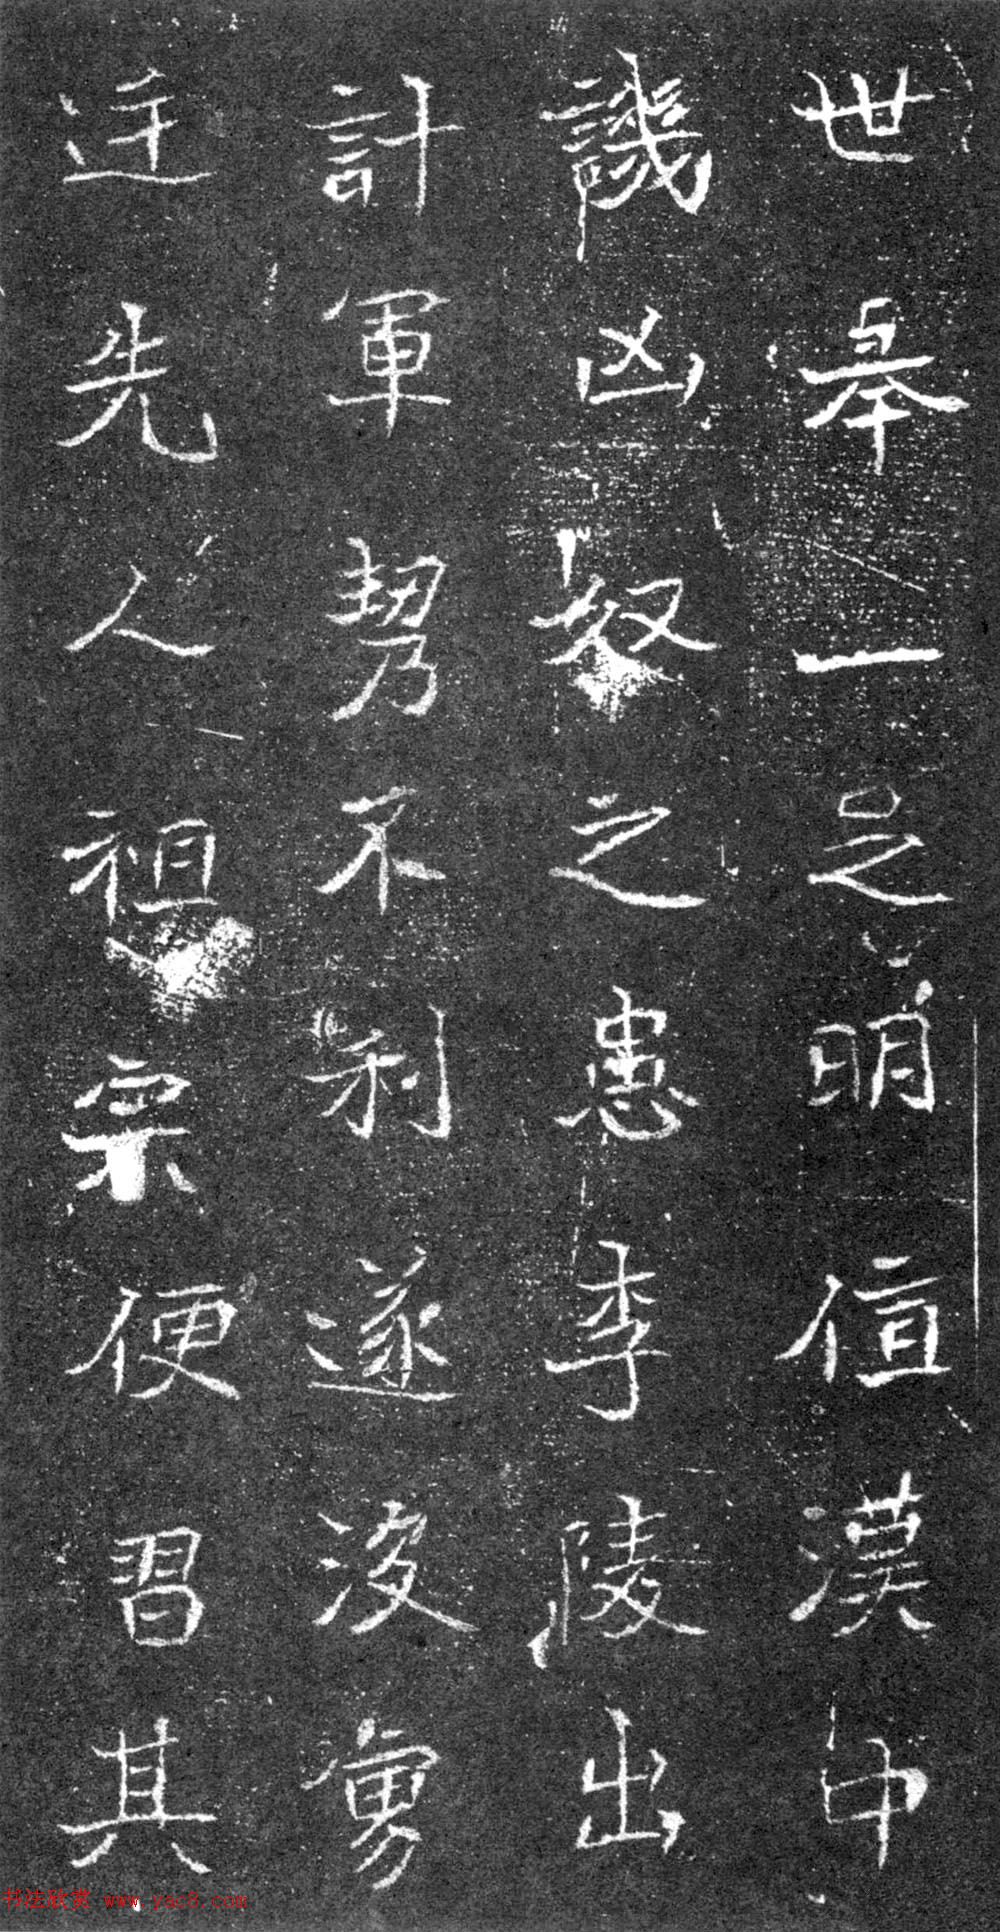 世皋一足明值漢中
譏凶奴之患李陵出
計軍勢不利遂沒虜
廷先人祖宗便習其
书法欣赏 www.yac8.com